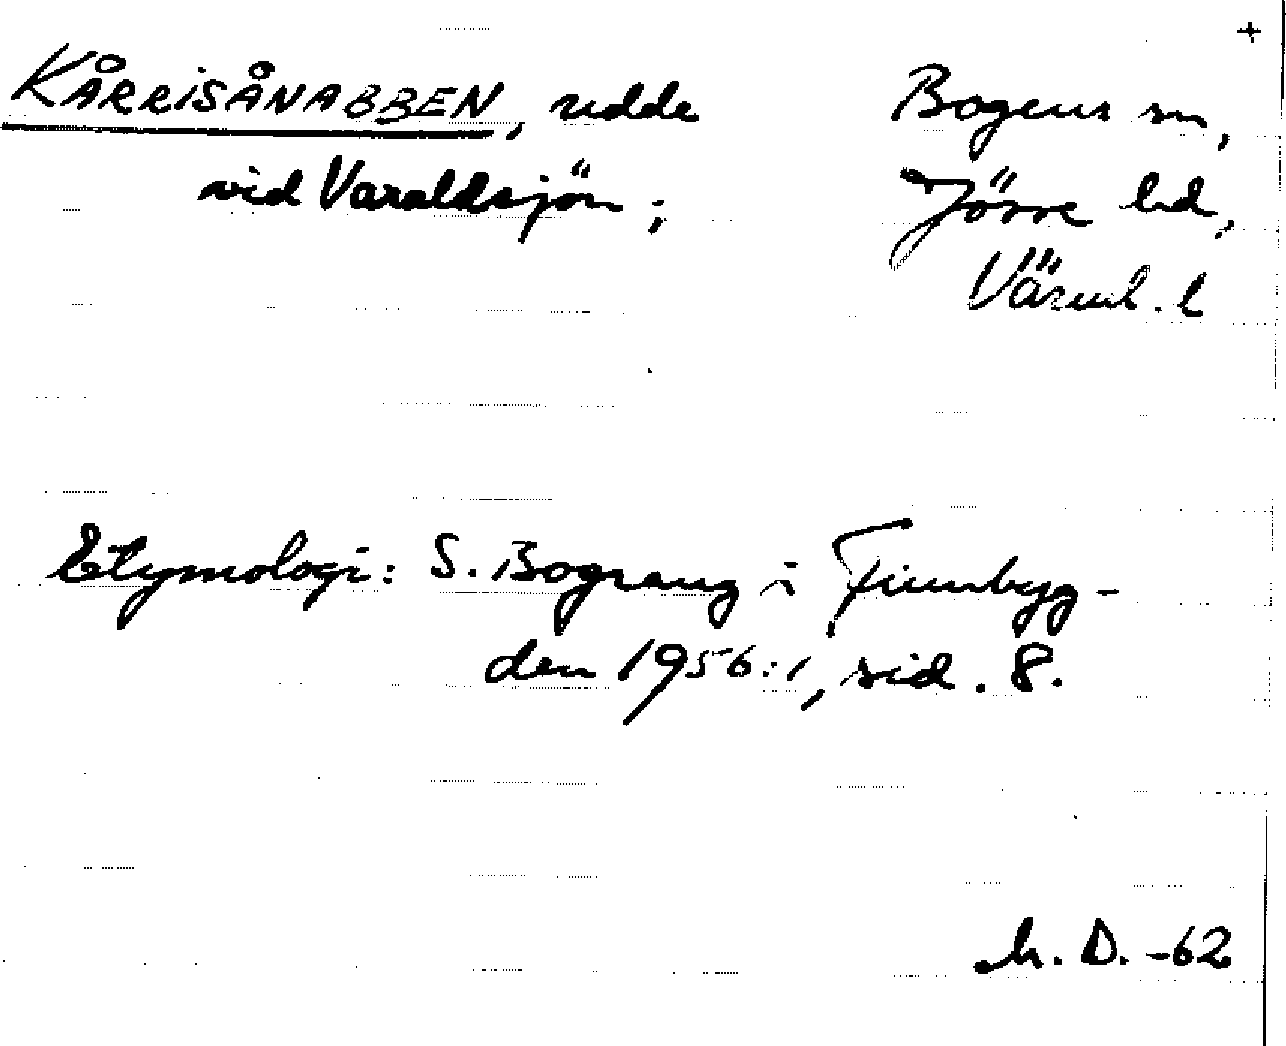 +
KÅRRISÅNABBEN, udde
vid Varaldsjön;
Bogens sn,
Jösse hd,
Värml. l
Etymologi: S. Bograng i Finnbyg-
den 1956:1, sid. 8.
h. D. -62